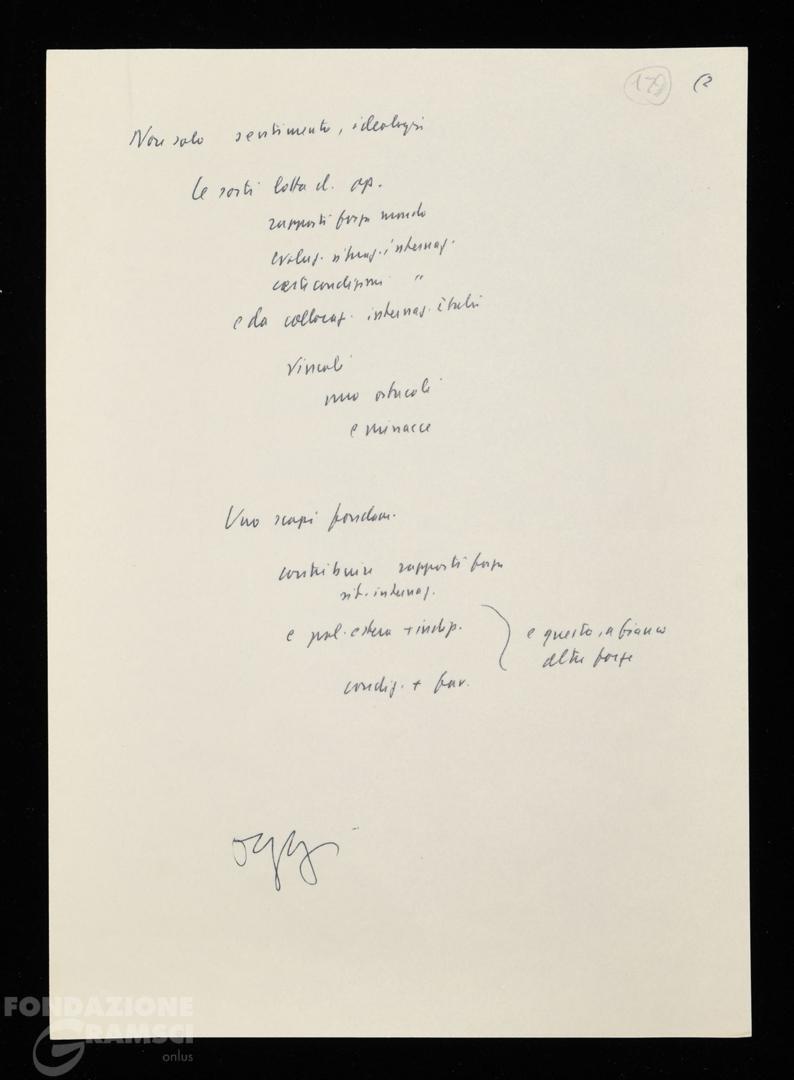 178 (2
Non solo sentimento, ideologia
Le sorti lotta cl. op.
rapporti forza mondo
evoluz. situaz. internaz.
certe condizioni "
e da collocaz. internaz. Italia
Vincoli
uno ostacoli
e minacce
Uno scopi fondam.
contribuire rapporti forza
sit. internaz.
e pol. estera + indip.
e questo, a fianco
altre forze
condiz. + fav.
Oggi
FONDAZIONE
GRAMSCI
onlus